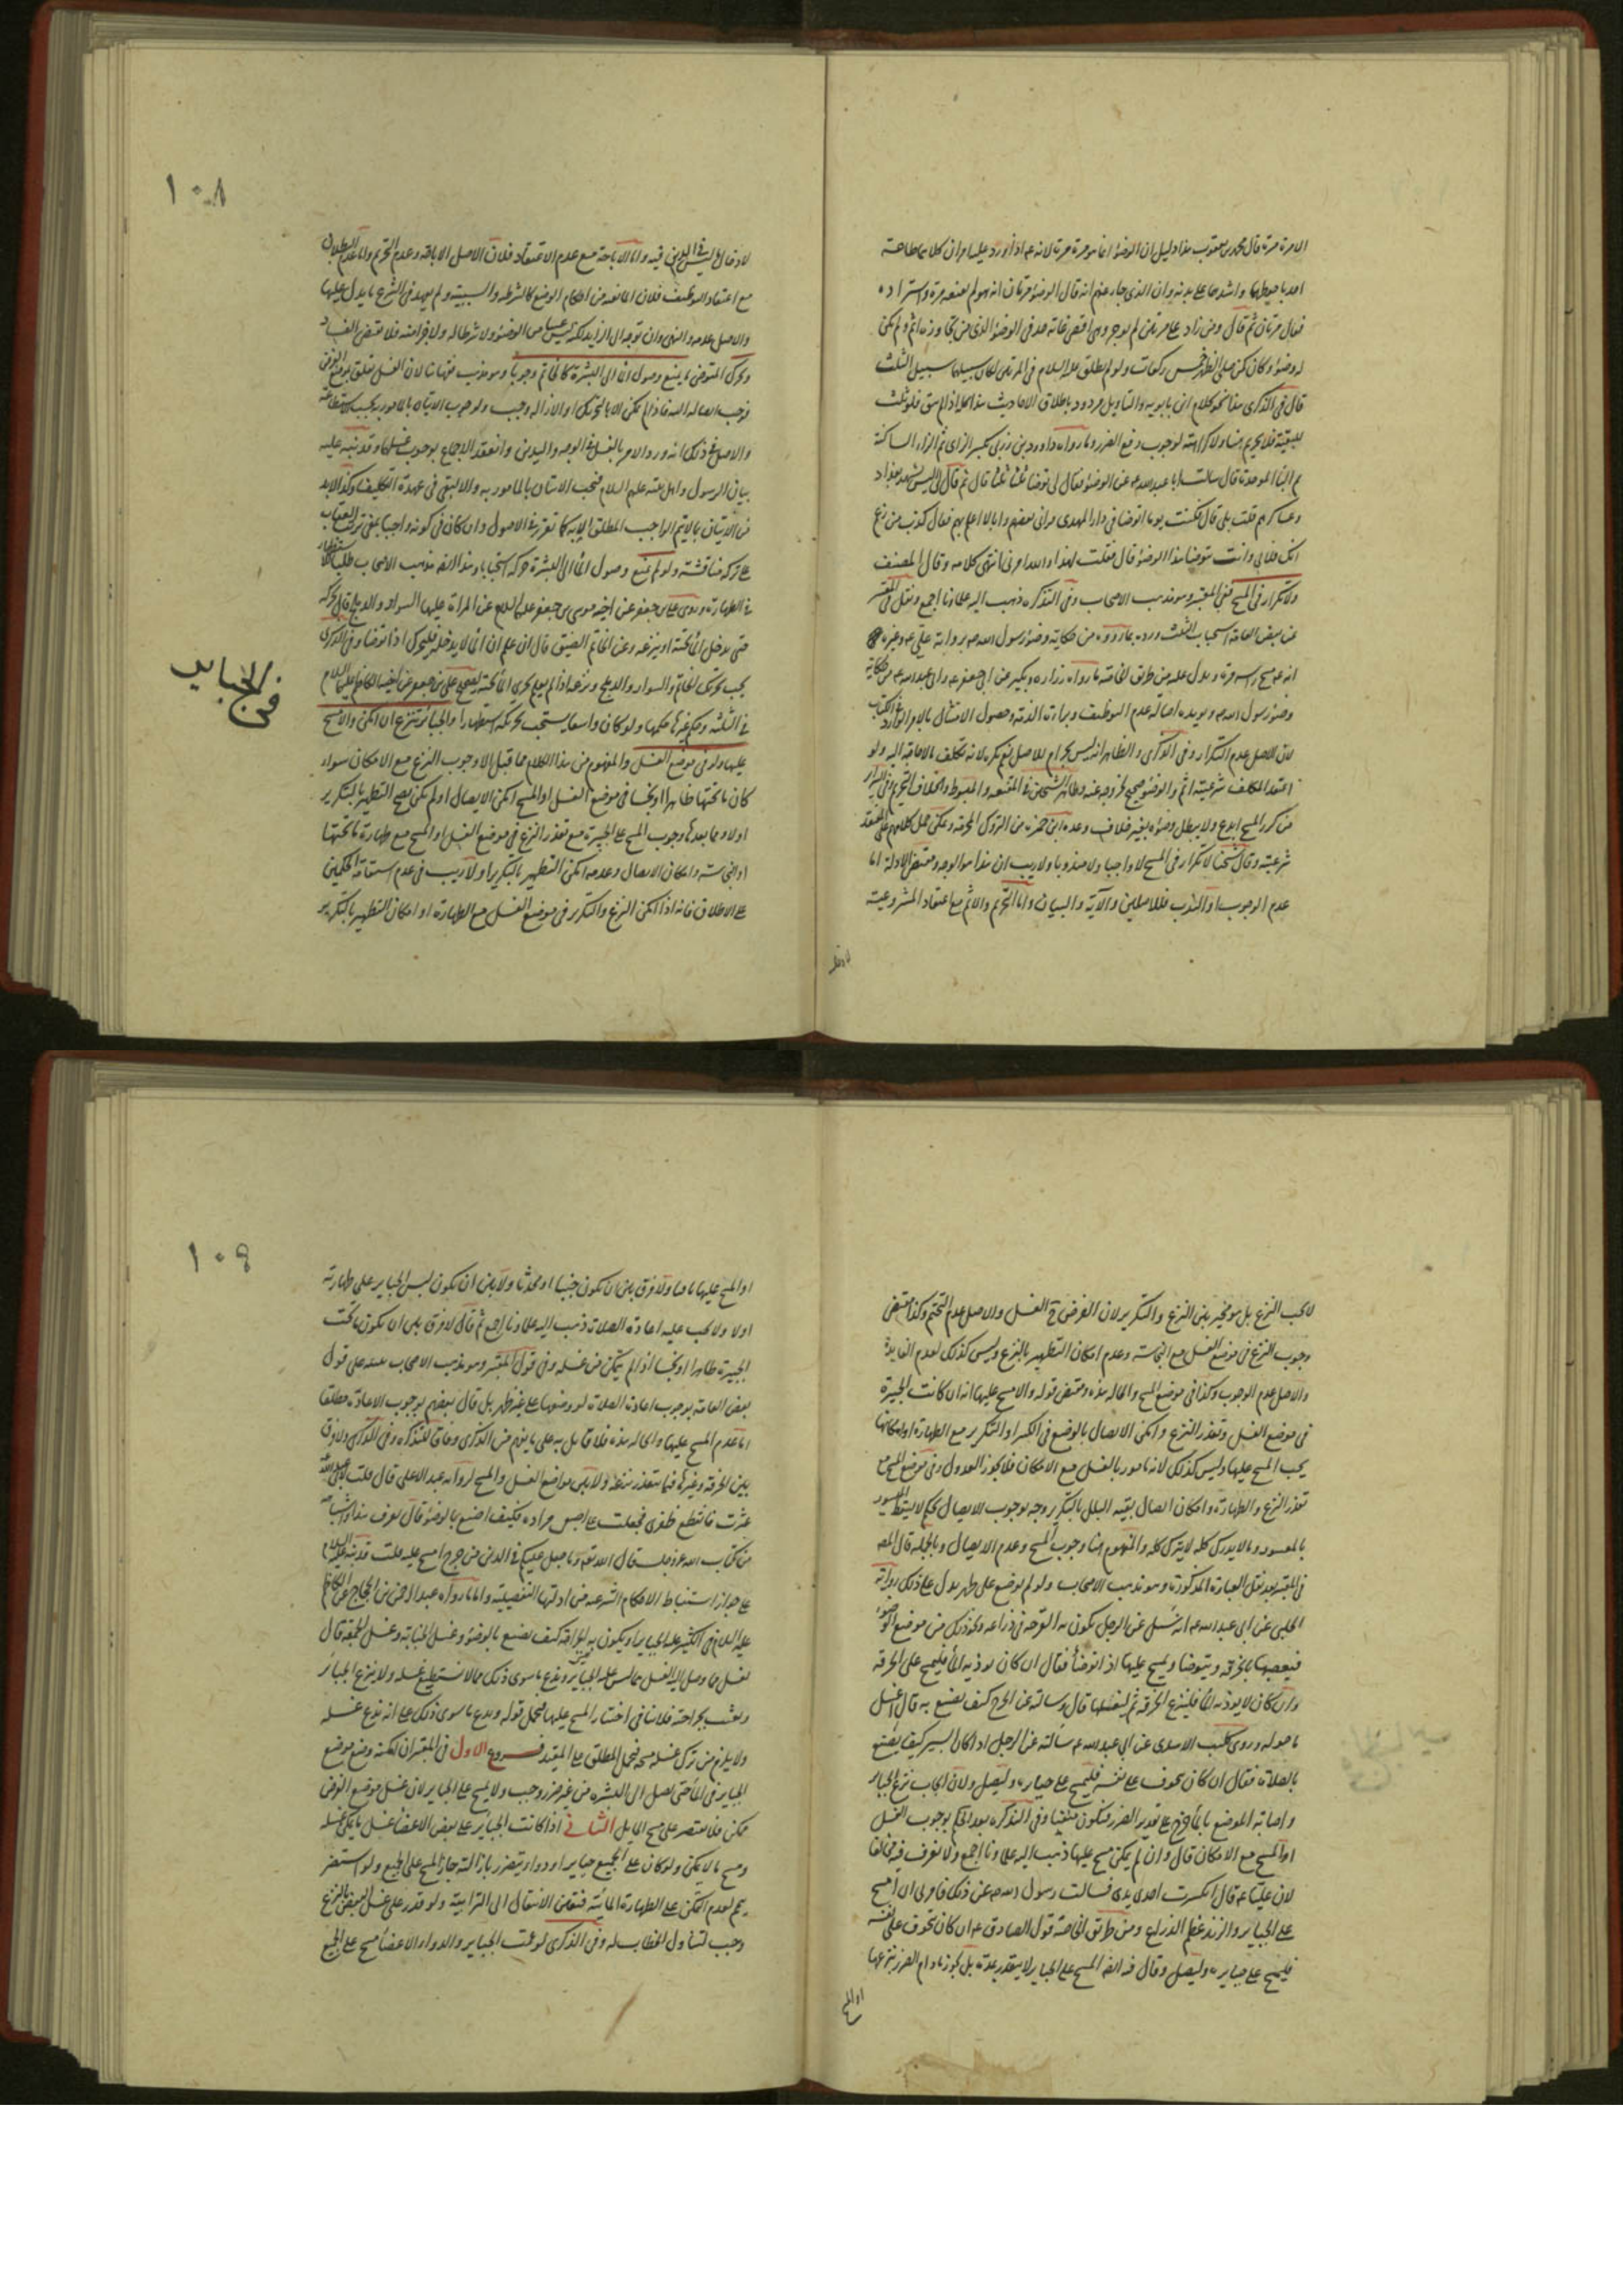 الا مرة مرة قال محمد بن يعقوب هذا دليل ان الوضوء انما هو مرة مرة لانه ع اذا ورد عليه امران كلاهما طاعة
احد باحوطهما واشدهما على بدنه وان الذي جاء عنهم انه قال الوضوء مرتان انه هو لم يقنعه مرة واستزاده
فقال مرتان ثم قال ومن زاد على مرتين لم يوجر وهي اقصى غاية حد في الوضوء الذي من تجاوزه اثم ولم يكن
له وضوء وكان كمن صلى الظهر خمس ركعات ولو لم يطلق عليه السلام في المرتين لكان سبيلهما سبيل الثلث
قال في الذكرى هذا نحو كلام ابن بابويه والتأويل مردود باطلاق الاحاديث هذا كله اذا لم سق فلو ثلث
للتقية فلا تحريم هنا ولا كراهة لوجوب دفع الضرر وما رواه داود بن زربي بكسر الزاي ثم الراء الساكنة
ثم الباء الموحدة قال سالت ابا عبد الله ع عن الوضوء فقال لي توضا ثلثا ثلثا قال ثم قال لي اليس تشهد بغداد
وعساكرهم قلت بلى قال فكنت يوما اتوضا في دار المهدي فراني بعضهم وانا لا اعلم بهم فقال كذب من زعم
انك فلاني وانت تتوضا هذا الوضوء قال فقلت لهذا والله امرني انتهى كلامه وقال المصنف
ولا تكرار في المسح ففي المعتبر وهو مذهب الاصحاب وفي التذكرة ذهب اليه علماؤنا اجمع ونقل في المعتبر
عن بعض العامة استحباب التثليث ورده بما رووه من حكاية وضوء رسول الله ص برواية علي ع وغيره
انه ع مسح راسه مرة ويدل عليه من طريق الخاصة ما رواه زرارة وبكير عن ابي جعفر ع وابي عبد الله ع من حكاية
وضوء رسول الله ص ويويده اصالة عدم التوظيف وبراءة الذمة وحصول الامتثال بالامر الوارد في الكتاب
لان الاصل عدم التكرار وفي الذكرى والظاهر انه ليس بحرام للاصل نعم يكره لانه تكلف ما لا حاجة اليه ولو
اعتقد المكلف شرعيته اثم والوضوء صحيح لخروجه عنه وظاهر الشيخين في المقنعة والمبسوط والخلاف التحريم وفي السرائر
من كرر المسح ابدع ولا يبطل وضوءه بغير خلاف وعده ابن حمزة من التروك المحرمة ويمكن حمل كلامهم على المعتقد
شرعيته وقال شيخنا لا تكرار في المسح لا واجبا ولا مندوبا ولا ريب ان هذا هو الوجه ومقتضى الادلة اما
عدم الوجوب او الندب فللاصلين والآية والبيان واما التحريم والاثم مع اعتقاد المشروعية
١٠٨
لادخال ما ليس في الدين فيه واما الاباحة مع عدم الاعتقاد فلان الاصل الاباحة وعدم التحريم واما عدم البطلان
مع اعتقاد التوظيف فلان المانعية من احكام الوضع كالشرطية والسببية ولم يعهد في الشرع ما يدل عليها
والاصل عدمه والنهي وان توجه الى الزايد لكنه ليس عبارة عن الوضوء ولا شرطا له ولا جزءا منه فلا يقتضي الفساد
ويحرك المتوضي ما يمنع وصول الماء الى البشرة كالخاتم وجوبا وهو مذهب فقهائنا لان الغسل تعلق بموضع الفرض
فيجب ايصاله اليه فاذا لم يمكن الا بالتحريك او الازالة وجب ولوجوب الاتيان بالمامور به بحسب الاستطاعة
والاصل في ذلك انه ورد الامر بالغسل في الوجه واليدين وانعقد الاجماع بوجوب غسلهما وقد نبه عليه
بيان الرسول واهل بيته عليهم السلام فيجب الاتيان بالمامور به والا لبقي في عهدة التكليف وكذا لابد
من الاتيان بما لا يتم الواجب المطلق الا به كما تقرر في الاصول وان كان في كونه واجبا بمعنى ترتب العقاب
على تركه مناقشة ولو لم يمنع وصول الماء الى البشرة حركه استحبابا وهذا ايضا مذهب الاصحاب طلبا للاستظهار
في الطهارة وروى علي بن جعفر عن اخيه موسى بن جعفر عليه السلام عن المراة عليها السوار والدملج قال تحركه
حتى يدخل الماء تحته او ينزعه وعن الخاتم الضيق قال ان علم ان الماء لا يدخله فليحركه اذا توضا وفي الذكرى
يجب تحريك الخاتم والسوار والدملج ونزعه اذا لم يعلم جري الماء تحته لصحيح علي بن جعفر عن اخيه الكاظم عليهما السلام
في الثلثة وحكم غيرها حكمها ولو كان واسعا يستحب تحريكه استظهارا والجبائر تنزع ان امكن والا مسح
عليها ولو في موضع الغسل والمفهوم من هذا الكلام مما قبل الا وجوب النزع مع الامكان سواء
كان ما تحتها طاهرا او نجسا في موضع الغسل او المسح امكن الايصال او لم يمكن يصح التطهير بالتكرير
اولا ومما بعدها وجوب المسح على الجبيرة مع تعذر النزع في موضع الغسل او المسح مع طهارة ما تحتها
او النجاسة وامكان الايصال وعدمه امكن التطهير بالتكرير او لا ريب في عدم استقامة الحكمين
على الاطلاق فانه اذا امكن النزع والتكرير في موضع الغسل مع الطهارة او امكان التطهير بالتكرير
في الجبائر
لا يجب النزع بل هو مخير بين النزع والتكرير لان الغرض هو الغسل والاصل عدم التحتم وكذا مقتضى
وجوب النزع في موضع الغسل مع النجاسة وعدم امكان التطهير بالنزع وليس كذلك لعدم الفايدة
والاصل عدم الوجوب وكذا في موضع المسح والحالة هذه ومقتضى قوله والا مسح عليها انه ان كانت الجبيرة
في موضع الغسل وتعذر النزع وامكن الايصال بالوضع في الكر او التكرير مع الطهارة او امكانها
يجب المسح عليها وليس كذلك لانه مامور بالغسل مع الامكان فلا يجوز العدول وفي موضع المسح مع
تعذر النزع والطهارة وامكان ايصال بقية البلل بالتكرير وجه بوجوب الايصال بحكم لا يسقط الميسور
بالمعسور وما لا يدرك كله لا يترك كله والمفهوم هنا وجوب المسح وعدم الايصال وبالجملة قال المصنف
في المعتبر بعد نقل العبارة المذكورة وهو مذهب الاصحاب ولو لم توضع على طهر يدل على ذلك رواية
الحلبي عن ابي عبد الله ع انه سئل عن الرجل يكون به القرحة في ذراعه ونحو ذلك من موضع الوضوء
فيعصبها بالخرقة ويتوضا ويمسح عليها اذا توضأ فقال ان كان يوذيه الماء فليمسح على الخرقة
وان كان لا يوذيه الماء فلينزع الخرقة ثم ليغسلها قال وسالته عن الجرح كيف يصنع به قال اغسل
ما حوله وروى كليب الاسدي عن ابي عبد الله ع سالته عن الرجل اذا كان كسيرا كيف يصنع
بالصلاة فقال ان كان يتخوف على نفسه فليمسح على جبايره وليصل ولان ايجاب نزع الجبائر
واصابة الموضع بالماء حرج على تقدير الضرر فيكون منفيا وفي التذكرة بعد الحكم بوجوب الغسل
او المسح مع الامكان قال وان لم يمكن مسح عليها ذهب اليه علماؤنا اجمع ولا نعرف فيه مخالفا
لان عليا ع قال انكسرت احدى يدي فسالت رسول الله ص عن ذلك فامرني ان امسح
على الجبائر والزند عظم الذراع ومن طريق الخاصة قول الصادق ع ان كان يتخوف على نفسه
فليمسح على جبايره وليصل وقال فيه ايضا المسح على الجبائر لا يتقدر بمدة بل يجوز ما دام الضرر بنزعها
او المسح
١٠٩
او المسح عليها باقيا ولا فرق بين ان يكون جنبا او محدثا ولا بين ان يكون لبس الجبائر على طهارة
اولا ولا يجب عليه اعادة الصلاة ذهب اليه علماؤنا اجمع ثم قال لا فرق بين ان يكون ما تحت
الجبيرة طاهرا او نجسا اذا لم يتمكن من غسله وفي قول المعتبر وهو مذهب الاصحاب تنبيه على قول
بعض العامة بوجوب اعادة الصلاة لو وضعها على غير طهر بل قال بعضهم بوجوب الاعادة مطلقا
اما عدم المسح عليها والحالة هذه فلا قائل به على ما يفهم من الذكرى وفاقا للتذكرة وفي الذكرى ولا فرق
بين الخرقة وغيرها فيما يتعذر نزعه ولا بين مواضع الغسل والمسح لرواية عبد الاعلى قال قلت لابي عبد الله
عثرت فانقطع ظفري فجعلت على اصبعي مرارة فكيف اصنع بالوضوء قال تعرف هذا واشباهه
من كتاب الله عز وجل قال الله تعالى وما جعل عليكم في الدين من حرج امسح عليه قلت قد نبه عليه السلام
على جواز استنباط الاحكام الشرعية من ادلتها التفصيلية واما ما رواه عبد الرحمن بن الحجاج عن الكاظم
عليه السلام في الكسير عليه الجبائر او يكون به الجراحة كيف يصنع بالوضوء وغسل الجنابة وغسل الجمعة قال
يغسل ما وصل اليه الغسل مما ليس عليه الجبائر ويدع ما سوى ذلك مما لا يستطيع غسله ولا ينزع الجبائر
ويعبث بجراحته فلا ينافي اختيار المسح عليها فيحمل قوله ويدع ما سوى ذلك على انه يدع غسله
ولا يلزم من ترك غسله مسحه فيحمل المطلق على المقيد فروع الاول في المعتبر ان امكنه وضع موضع
الجبائر في الماء حتى يصل الى البشرة من غير ضرر وجب ولا يمسح على الجبائر لان غسل موضع الفرض
ممكن فلا يقتصر على مسح الحايل الثاني اذا كانت الجبائر على بعض الاعضاء غسل ما يمكن غسله
ومسح ما لا يمكن ولو كان على الجميع جبائر او دواء يتضرر بازالته جاز المسح على الجميع ولو استضر
تيمم لعدم التمكن على الطهارة المائية فيتعين الانتقال الى الترابية ولو قدر على غسل البعض بالنزع
وجب لتناول الخطاب له وفي الذكرى لو عمت الجبائر والدواء الاعضاء مسح على الجميع